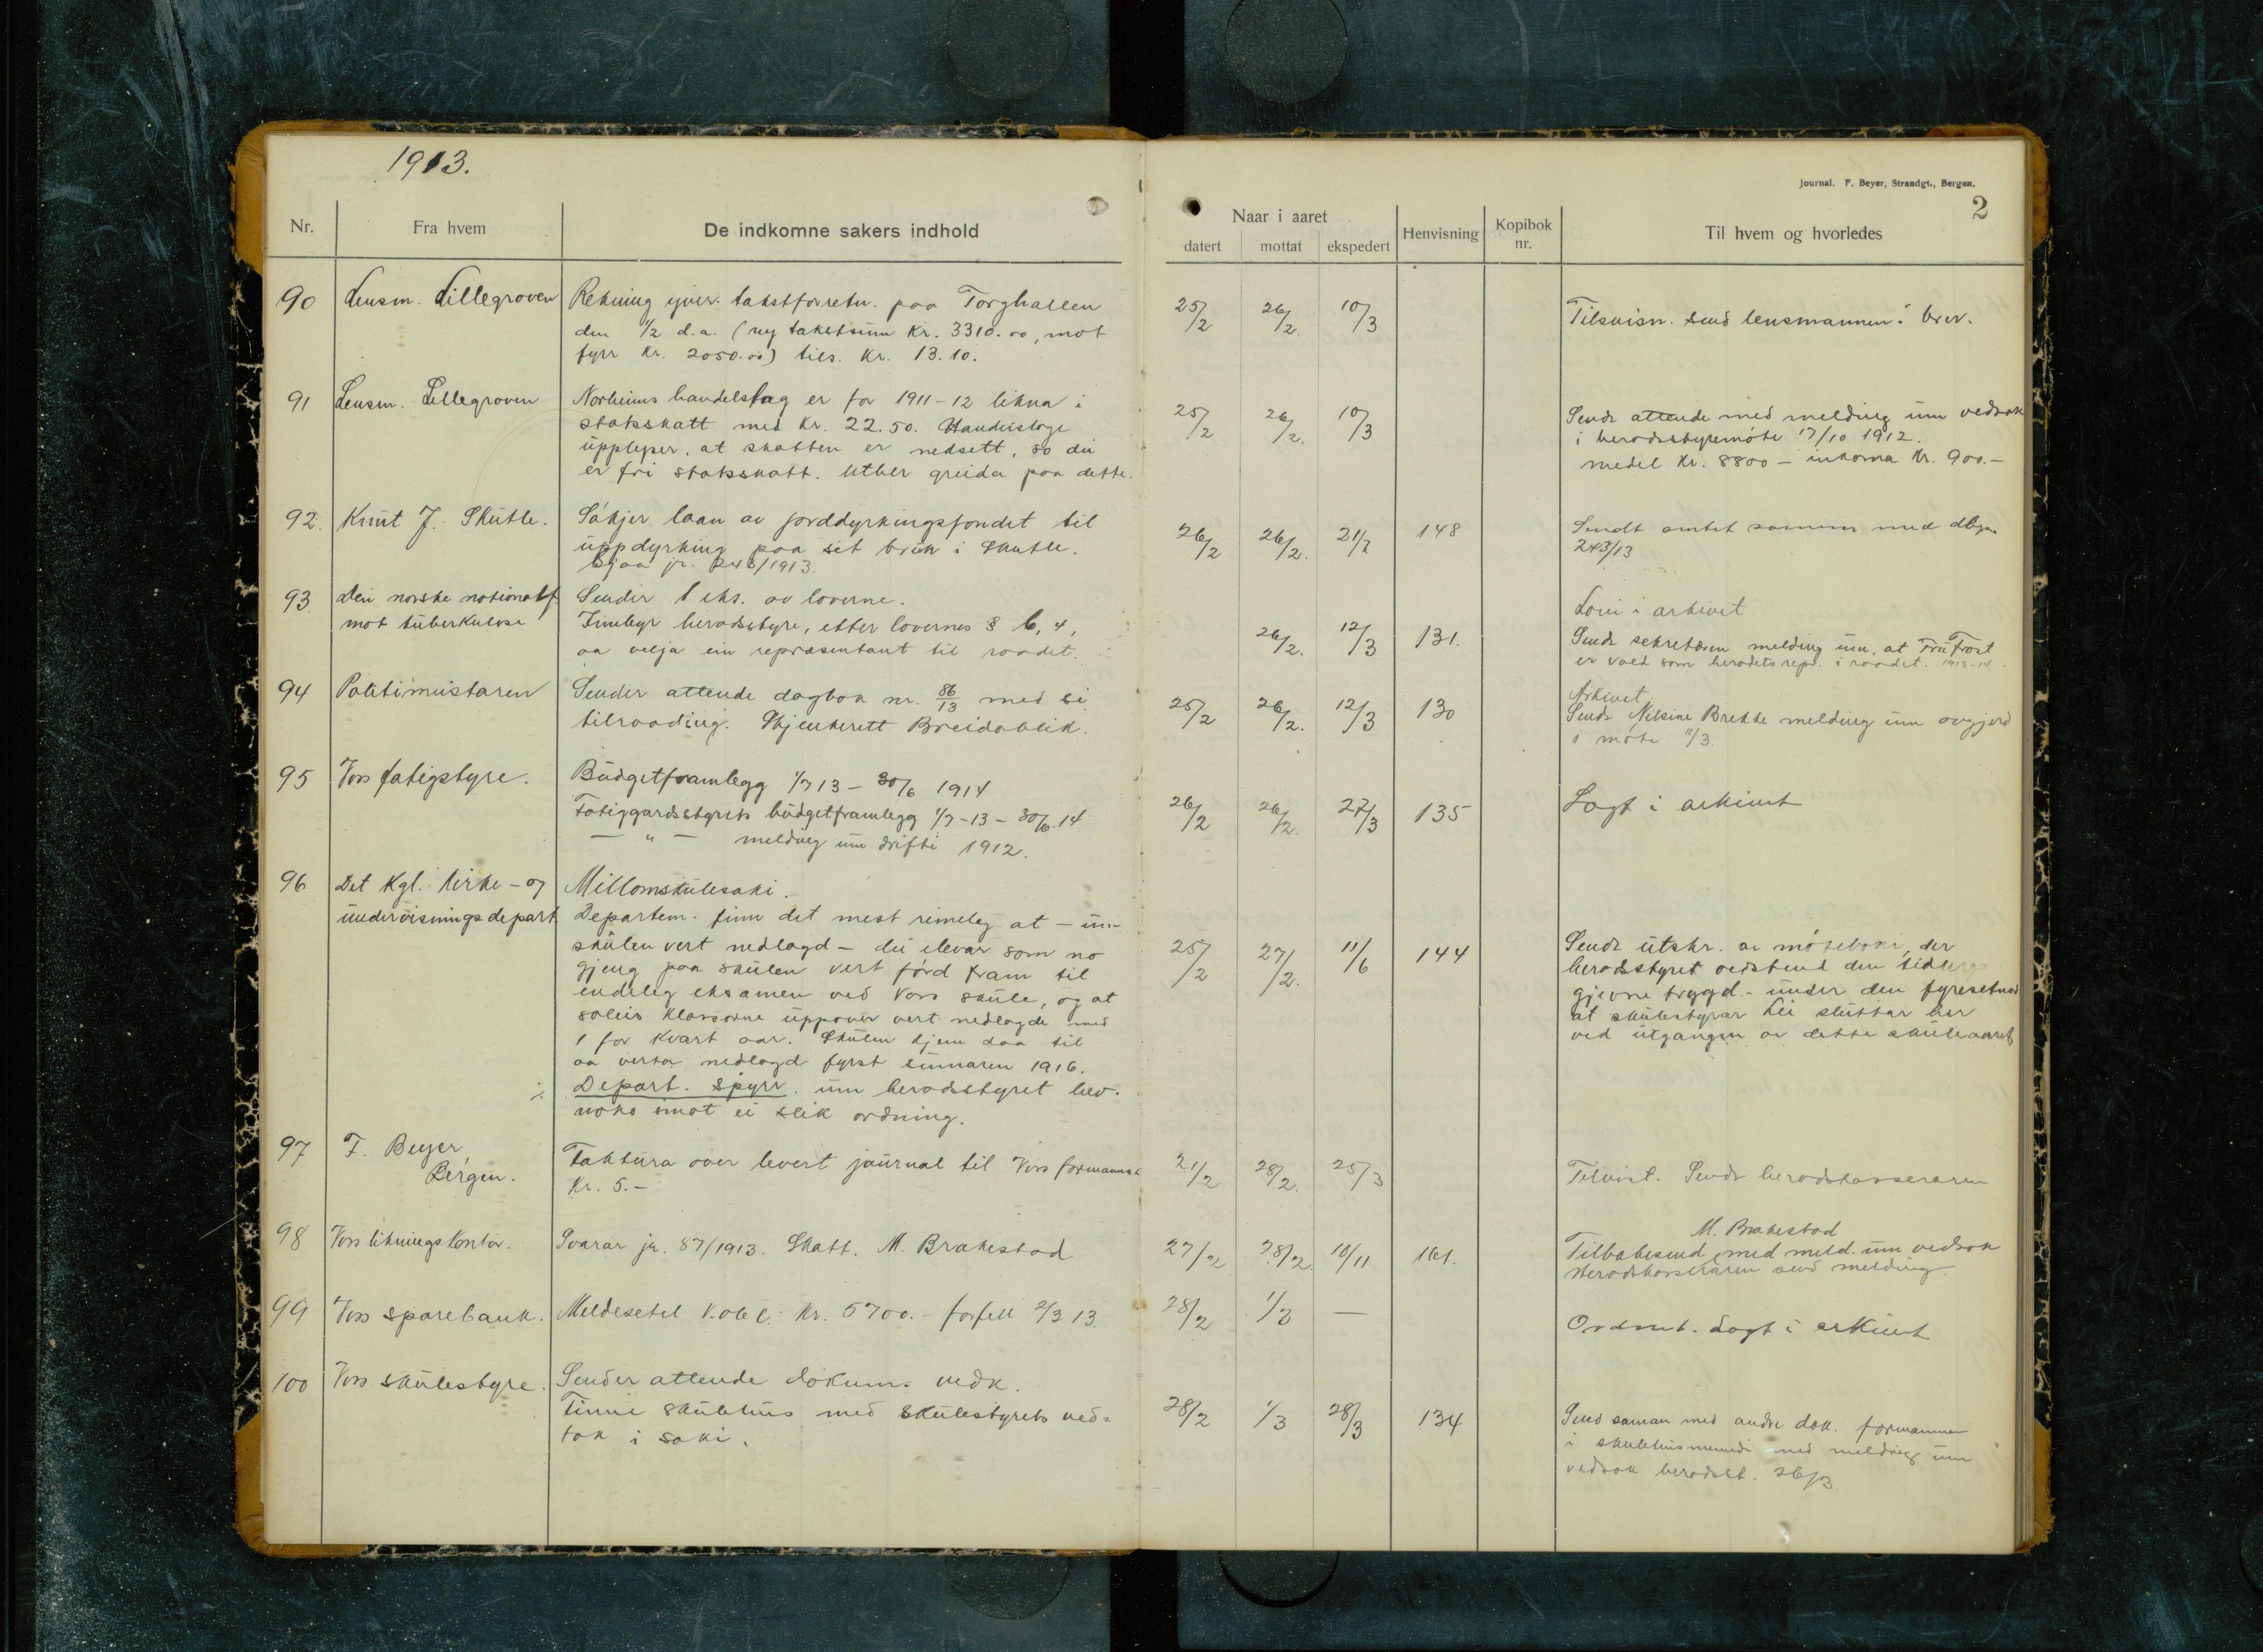 1913.
Journal. F. Beyer, Strandgt., Bergen.
2
Nr.
Fra hvem
De indkomne sakers indhold
Naar i aaret
datert
mottat
ekspedert
Henvisning
Kopibok nr.
Til hvem og hvorledes
90 Lensm. Lillegroven Rekning yver takstforretn. paa Torghallen 25/2 26/2. 10/3 Tilvisn. send lensmannen i brev.
den 1/2 d.a. (ny takstsum Kr. 3310.00, mot
fyrr Kr. 2050.00) tils. Kr. 13.10.
91 Lensm. Lillegroven Norheims handelslag er for 1911-12 likna i 25/2 26/2. 10/3 Sendt attende med melding um vedtak
statsskatt med Kr. 22.50. Handelslage i heradsstyremöte 17/10 1912.
upplyser, at skatten er nedsett, so dei medel Kr. 8800 - inkoma Kr. 900.-
er fri statsskatt. Utber greida paa dette.
92. Knut J. Skutle. Sökjer laan av jorddyrkingsfondet til 26/2 26/2. 21/7 148 Sendt amtet saman med
uppdyrking paa sit bruk i Skutle. 243/13
Sjaa jr. 243/1913.
93. Den norske nationalf. Sender 1 eks. av loverne. Lovi i arkivet
mot tuberkulose Innbyr heradsstyre, etter lovernes § 6, 4, 26/2. 12/3 131. Sendt sekretæren melding um, at Fru Frost
aa velja ein repræsentant til raadet. er vald som heradets repr. i raadet. 1913-14.
94 Politimeistaren Sender attende dagbok nr. 86/13 med si 25/2 26/2. 12/3 130 Arkivet.
tilraading. Skjenkerett Breidablik. Sendt Nilsine Brekke melding um avgjerd
i möte 11/3.
95 Voss fatigstyre. Budgetframlegg 1/7 13 - 30/6 1914 26/2 26/2. 27/3 135 Lagt i arkivet
Fatiggardsstyrets budgetframlegg 1/7-13 - 30/6.14
— " — melding um drifti 1912.
96 Det Kgl. Kirke- og Millomskulesaki.
undervisningsdepart Departem. finn det mest rimeleg at - um
skulen vert nedlagd - dei elevar som no 25/2 27/2. 11/6 144 Sendt utskr. av möteboki, der
gjeng paa skulen vert förd fram til heradsstyret vedstend den tidlegare
endeleg eksamen ved Voss skule, og at gjevne trygd - under den fyresetnad
soleis klassorne uppover vert nedlagde med at skulestyrar Lei sluttar her
1 for kvart aar. Skulen kjem daa til ved utgangen av dette skuleaaret
aa verta nedlagd fyrst sumaren 1916.
Depart. spyrr um heradsstyret hev
noko imot ei slik ordning.
97 F. Beyer, Faktura over levert journal til Voss formannsk. 21/2 28/2. 25/3 Tilvist. Sendt heradskasseraren
Bergen. Kr. 5.-
98 Voss likningskontor. Svarar jr. 87/1913. Skatt. M. Brakestad 27/2 28/2 10/11 161. M. Brakestad
Tilbakesend med meld. um vedtak
Heradskasseraren send melding.
99 Voss sparebank. Meldesetel Kr. 5700.- forfell 2/3 13. 28/2 1/3 — Ordnt. Lagt i arkivet
100 Voss skulestyre. Sender attende dokum. vedk. 28/2 1/3 28/3 134 Send saman med andre dok. formannen
Tinne skulehus med skulestyrets ved= i skulehusnemndi med melding um
tak i saki. vedtak heradst. 26/3